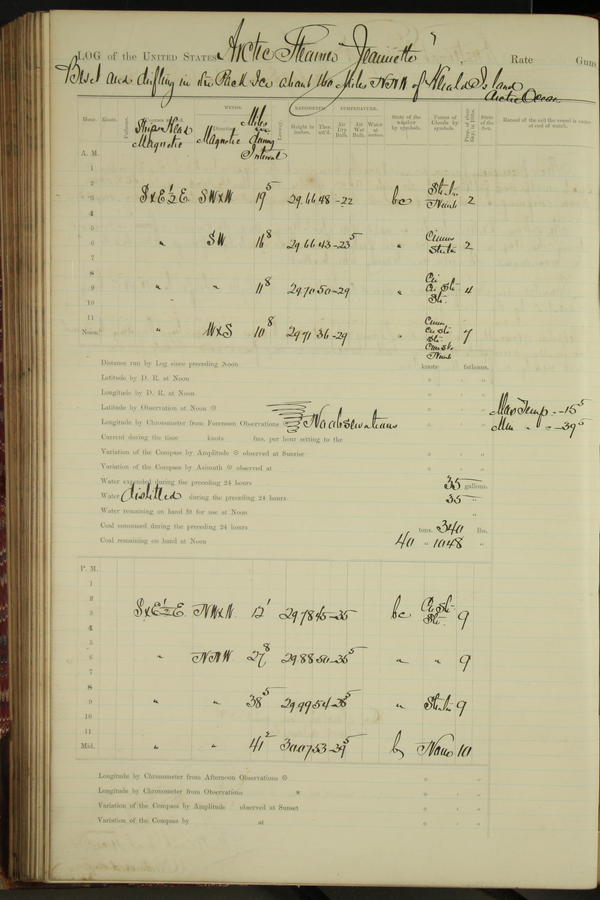 LOG of the UNITED STATES Arctic Steamer Jeannette, Rate Guns
Beset and drifting in the Pack Ice about 160 Miles NNW of Herald Island
Arctic Ocean
Hour. Knots. Ship's Head Magnetic WINDS. Magnetic Miles in during Interval Leeway. BAROMETER. Height in inches. Ther. att'd. TEMPERATURE. Air Dry Bulb. Air Wet Bulb. Water at surface. State of the weather by symbols. Forms of Clouds by symbols. State of the Sea. Record of the sail the vessel is under at end of watch.
A. M.
1
2
3 SxE½E SWxW 19⁵ 29.66 48 -22 bc Strata Nimb 2
4
5
6 " SW 16⁸ 29 66 43 -23⁵ " Cirrus Strata 2
7
8
9 " " 11⁸ 29 70 50 -29 " Cir Cir Str Str. 4
10
11
Noon. " WxS 10⁸ 29 71 36 -29 " Cirrus Cir Str Str Cum Str Nimb 7
Distance run by Log since preceding Noon knots fathoms.
Latitude by D. R. at Noon ° ' "
Longitude by D. R. at Noon ° ' "
Latitude by Observation at Noon ° ' " Max Temp. -15⁵
Longitude by Chronometer from Forenoon Observations No observations ° ' " Min " " -39⁵
Current during the time knots fms. per hour setting to the
Variation of the Compass by Amplitude observed at Sunrise ° ' "
Variation of the Compass by Azimuth observed at ° ' "
Water expended during the preceding 24 hours 35 gallons.
Water distilled during the preceding 24 hours 35 "
Water remaining on hand fit for use at Noon "
Coal consumed during the preceding 24 hours tons. 340 lbs.
Coal remaining on hand at Noon 40 " 1048 "
P. M.
1
2
3 SxE½E NWxN 12¹ 29 78 45 -35 bc Cir Str Str. 9
4
5
6 " NNW 27⁸ 29 88 50 -35⁵ " " 9
7
8
9 " " 38⁵ 29 99 54 -38⁵ " Strata 9
10
11
Mid. " " 41² 30 07 53 -39⁵ b None 10
Longitude by Chronometer from Afternoon Observations ° ' "
Longitude by Chronometer from Observations * ° ' "
Variation of the Compass by Amplitude observed at Sunset ° ' "
Variation of the Compass by at ° ' "